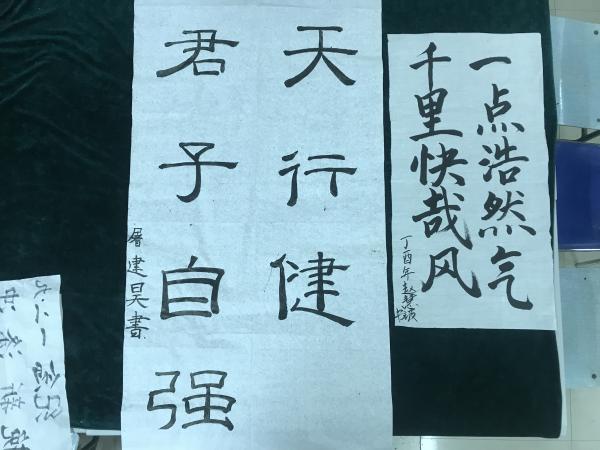 一点浩然气
千里快哉风
丁酉年
天行健
君子自强
屠建昊書